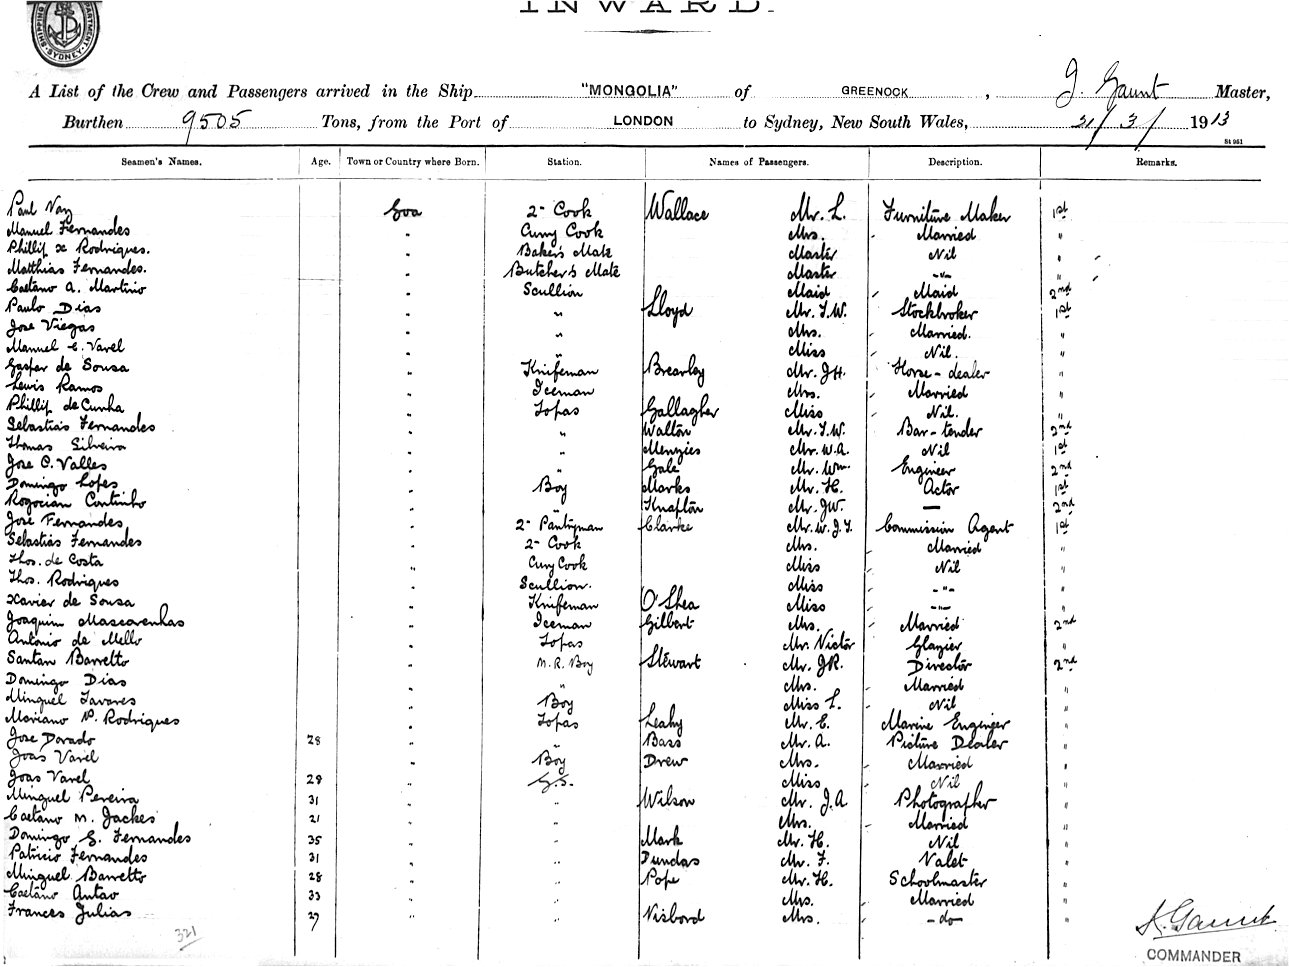 SHIPPING DEPARTMENT SYDNEY
INWARD.
A List of the Crew and Passengers arrived in the Ship "MONGOLIA" of GREENOCK, J. Gaunt Master,
Burthen 9505 Tons, from the Port of LONDON to Sydney, New South Wales, 21/3/1913
St 951
Seamen's Names. Age. Town or Country where Born. Station. Names of Passengers. Description. Remarks.
Paul Vaz Goa 2- Cook Wallace Mr. L. Furniture Maker 1st
Manuel Fernandes " Curry Cook Mrs. Married "
Phillip x Rodriques. " Baker's Mate Master Nil "
Matthias Fernandes. " Butcher's Mate Master -"- "
Caetano A. Martino " Scullion Maid Maid 2nd
Paulo Dias " " Lloyd Mr. T.W. Stockbroker 1st
Jose Viegas " " Mrs. Married. "
Manuel C. Varel " " Miss Nil. "
Gasper de Sousa " Knifeman Brearley Mr. JH. Horse-dealer "
Lewis Ramos " Iceman Mrs. Married "
Phillip de Cunha " Topas Gallagher Miss Nil. "
Sebastias Fernandes " " Walton Mr. T.W. Bar-tender 2nd
Thomas Silveira " " Menzies Mr. W.A. Nil 1st
Jose C. Valles " " Gale Mr. Wm Engineer 2nd
Domingo Lopes " Boy Marks Mr. H. Actor 1st
Rogocian Continho " " Knapton Mr. JW. — 2nd
José Fernandes " 2- Pantryman Clarke Mr. W.J.T. Commission Agent 1st
Sebastias Fernandes " 2- Cook Mrs. Married "
Thos. de Costa " Curry Cook Miss Nil "
Thos. Rodriques " Scullion. Miss -"- "
Xavier de Sousa " Knifeman O'Shea Miss -"- "
Joaquim Mascarenhas " Iceman Gilbert Mrs. Married 2nd
Antonio de Mello " Topas Mr. Victor Glazier "
Santan Barretto " M.R. Boy Stewart Mr. JR. Director 2nd
Domingo Dias " " Mrs. Married "
Minguel Tavares " Boy Miss L. Nil "
Mariano P. Rodriques " Topas Leahy Mr. C. Marine Engineer "
Jose Dorado 28 " " Bass Mr. A. Picture Dealer "
Joas Varel " Boy Drew Mrs. Married "
Joas Varel 29 " G.S. Miss Nil "
Minguel Pereira 31 " " Wilson Mr. J.A Photographer "
Caetano M. Jackes 21 " " Mrs. Married "
Domingo G. Fernandes 35 " " Mark Mr. H. Nil "
Patricio Fernandes 31 " " Dundas Mr. F. Valet "
Minguel Barretto 28 " " Pope Mr. H. Schoolmaster "
Caetano Antao 33 " " Mrs. Married "
Frances Julias 27 " " Nisbord Mrs. -do- "
321
A. Gaunt
COMMANDER